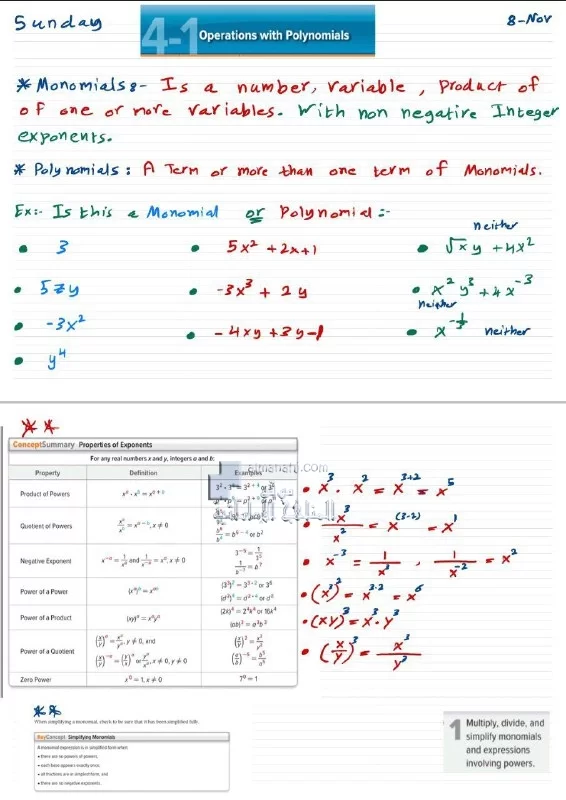 Sunday
4-1 Operations with Polynomials
8-Nov
* Monomials:- Is a number, variable, product of
of one or more variables. With non negative Integer
exponents.
* Polynomials: A Term or more than one term of Monomials.
Ex:- Is this a Monomial or Polynomial:-
neither
• 3 • 5x² + 2x+1 • √x y + 4x²
• 5zy • -3x³ + 2y • x² y³ + 4x⁻³
Neither
• -3x² • -4xy + 3y-1 • x^(-1/3) neither
• y⁴
**
ConceptSummary Properties of Exponents
For any real numbers x and y, integers a and b:
Property Definition Examples
Product of Powers xᵃ · xᵇ = xᵃ⁺ᵇ
Quotient of Powers xᵃ/xᵇ = xᵃ⁻ᵇ, x ≠ 0
Negative Exponent x⁻ᵃ = 1/xᵃ and 1/x⁻ᵃ = xᵃ, x ≠ 0
Power of a Power (xᵃ)ᵇ = xᵃᵇ
Power of a Product (xy)ᵃ = xᵃyᵃ
Power of a Quotient (x/y)ᵃ = xᵃ/yᵃ, y ≠ 0, and
Zero Power x⁰ = 1, x ≠ 0 7⁰ = 1
almanahj.com
• x³ · x² = x³⁺² = x⁵
• x³/x² = x⁽³⁻²⁾ = x¹
• x⁻³ = 1/x³ , 1/x⁻² = x²
• (x³)² = x³·² = x⁶
• (xy)³ = x³·y³
• (x/y)³ = x³/y³
**
When simplifying a monomial, check to be sure that it has been simplified fully.
KeyConcept Simplifying Monomials
A monomial expression is in simplified form when:
• there are no powers of powers,
• each base appears exactly once,
• all fractions are in simplest form, and
• there are no negative exponents.
1 Multiply, divide, and
simplify monomials
and expressions
involving powers.